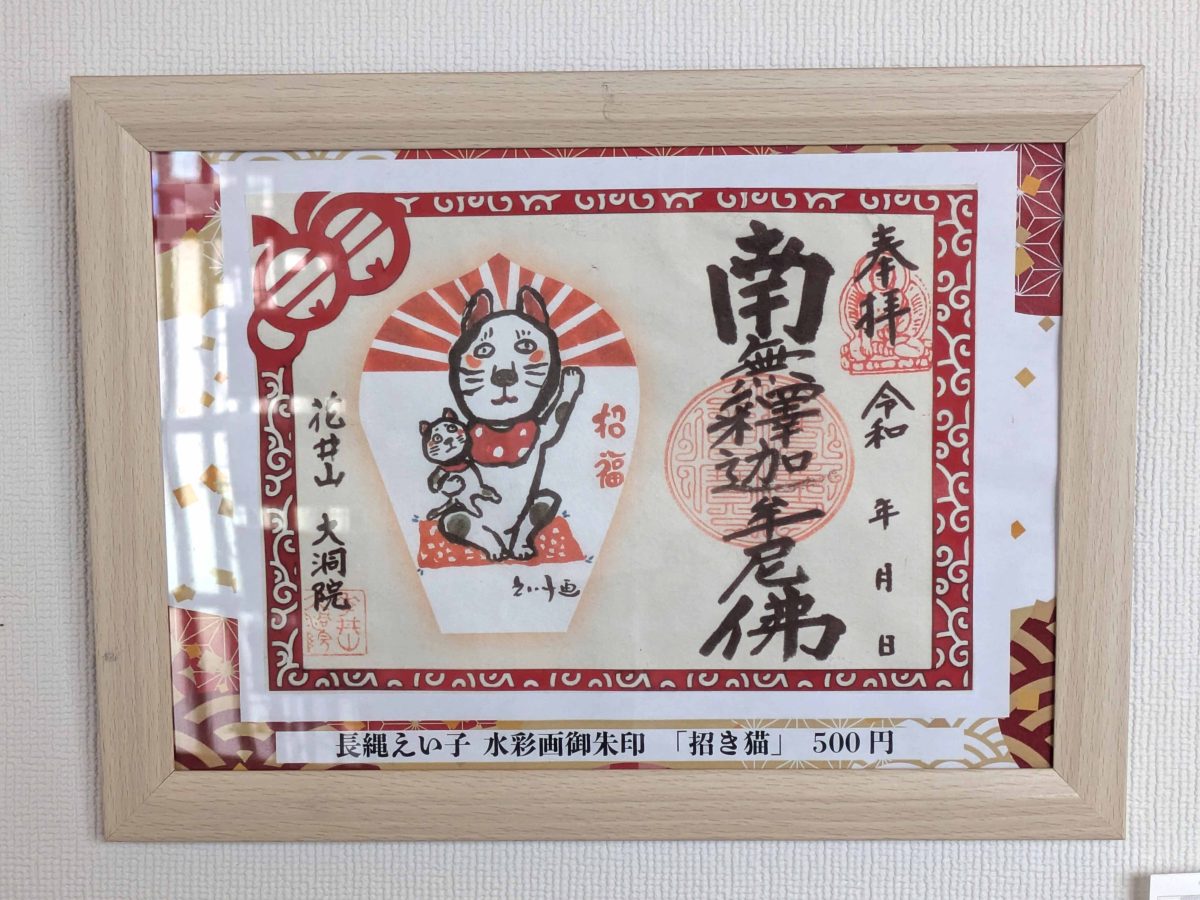 奉拝
令和 年 月 日
南無釋迦牟尼佛
招福
えい子画
花井山 大洞院
長縄えい子 水彩画御朱印 「招き猫」 500円